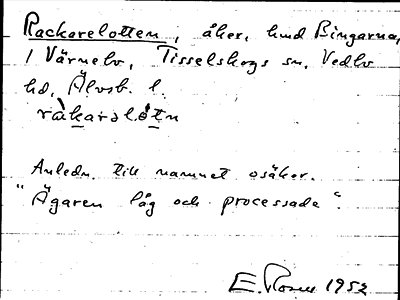 Rackarelotten, åker, hmd Bingarna,
1 Värnelv, Tisselskogs sn, Vedbo
hd, Älvsb. l.
ràkarəlòtn
Anledn. till namnet osäker.
"Ägaren låg och processade".
E. Rosen 1952